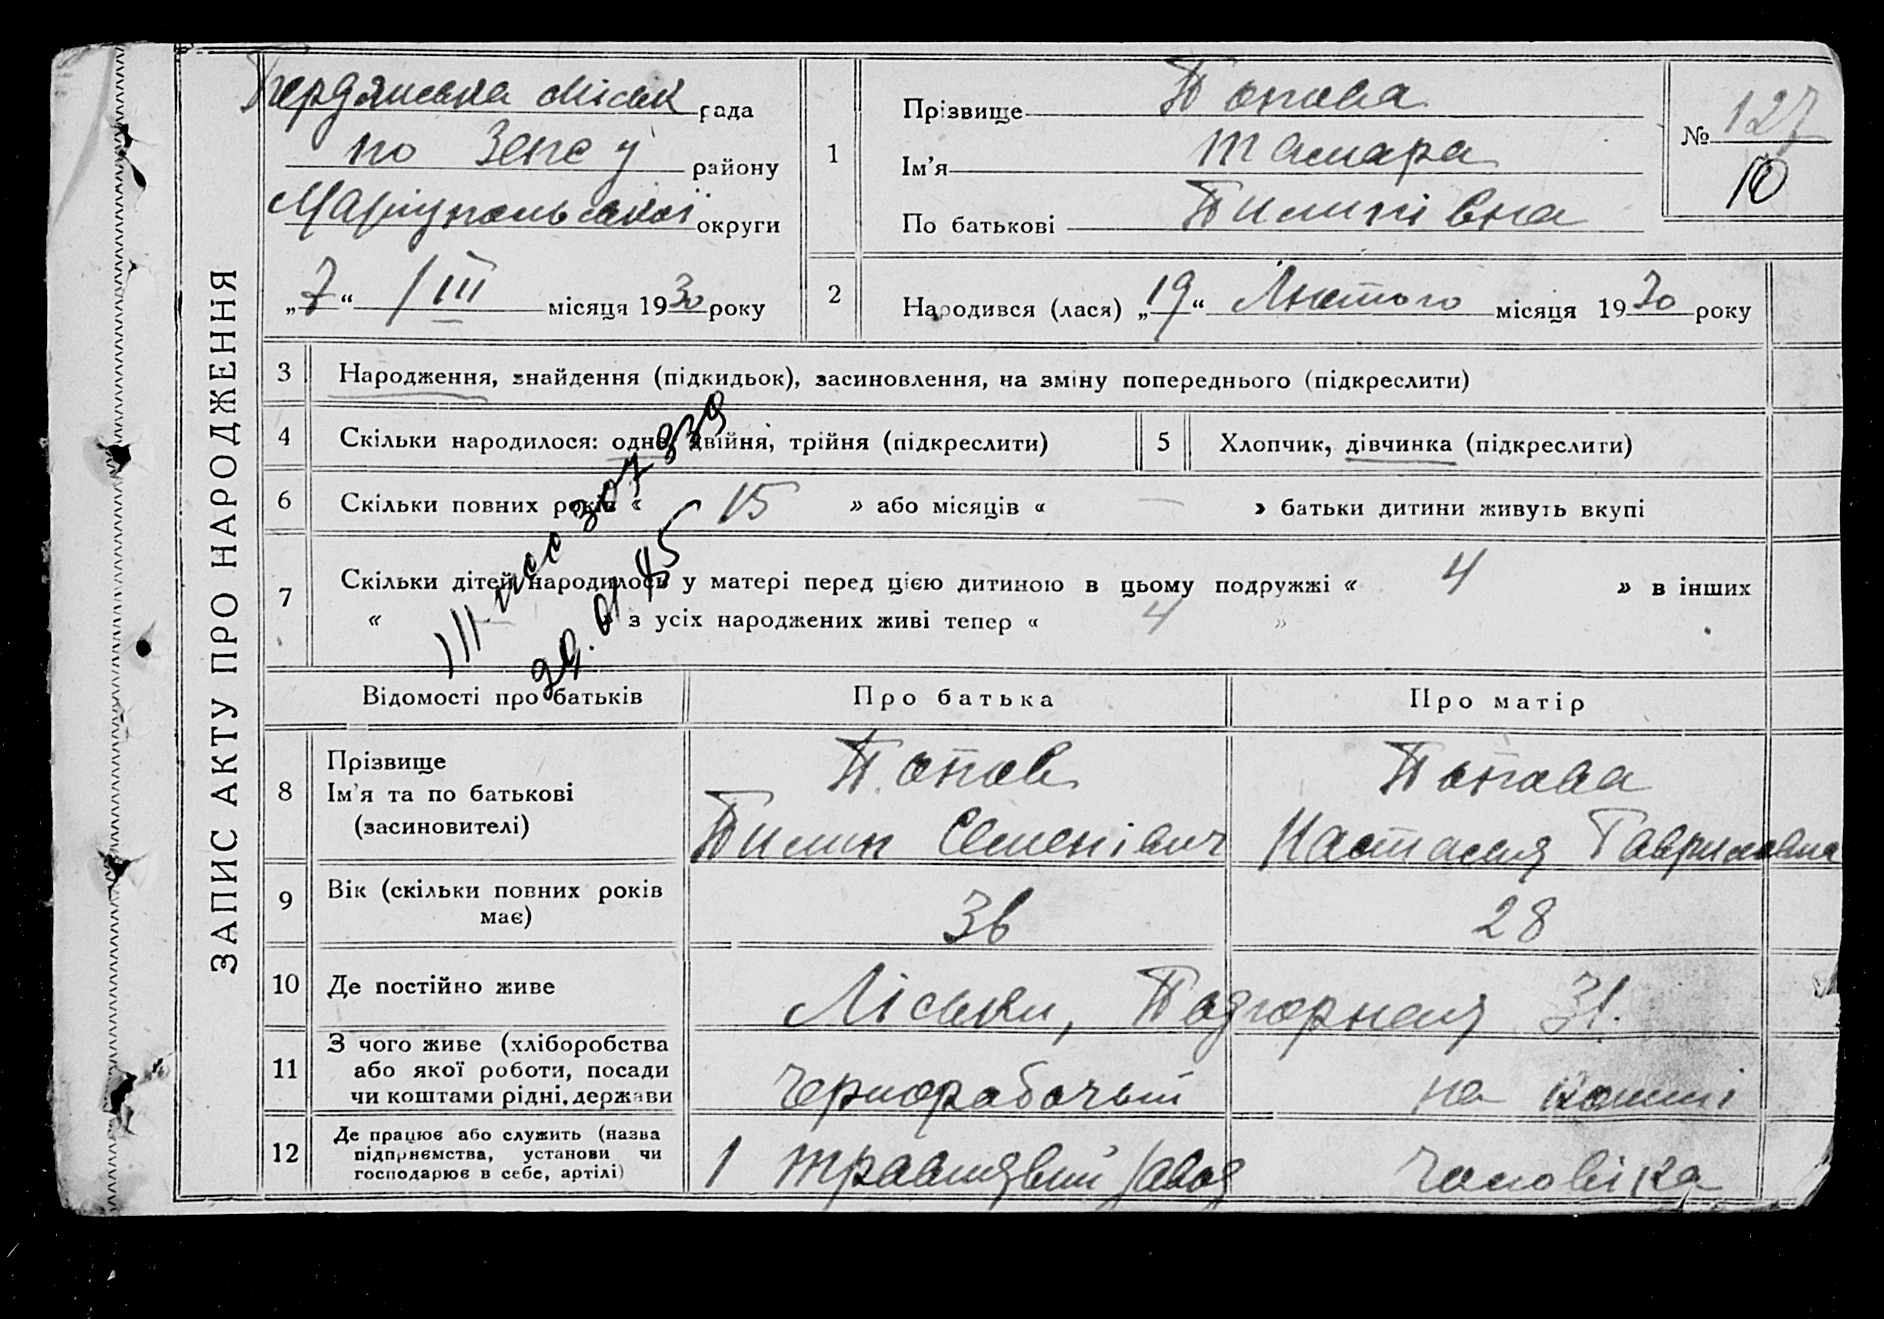 ЗАПИС АКТУ ПРО НАРОДЖЕННЯ
Бердянська міськ рада
по Запсу району
Маріупольської округи
„7“ / III місяця 1930 року
1
Прізвище Попова
Ім'я Тамара
По батькові Пилипівна
№ 127
10
2
Народився (лася) „19“ Лютого місяця 1930 року
3 Народження, знайдення (підкидьок), засиновлення, на зміну попереднього (підкреслити)
4 Скільки народилося: одне, двійня, трійня (підкреслити)
5 Хлопчик, дівчинка (підкреслити)
6 Скільки повних років « 15 » або місяців « — » батьки дитини живуть вкупі
7 Скільки дітей народилось у матері перед цією дитиною в цьому подружжі « 4 » в інших
« — » з усіх народжених живі тепер « 4 »
307339
Відомості про батьків Про батька Про матір
8 Прізвище
Ім'я та по батькові
(засиновителі)
Попов
Пилип Семенівич
Попова
Настасия Гавриловна
9 Вік (скільки повних років має)
36
28
10 Де постійно живе
Ліськи, Подгорная 31.
11 З чого живе (хліборобства
або якої роботи, посади
чи коштами рідні, держави
Чернорабочый
на кошті
12 Де працює або служить (назва
підприємства, установи чи
господарює в себе, артілі)
1 завод
Чоловіка